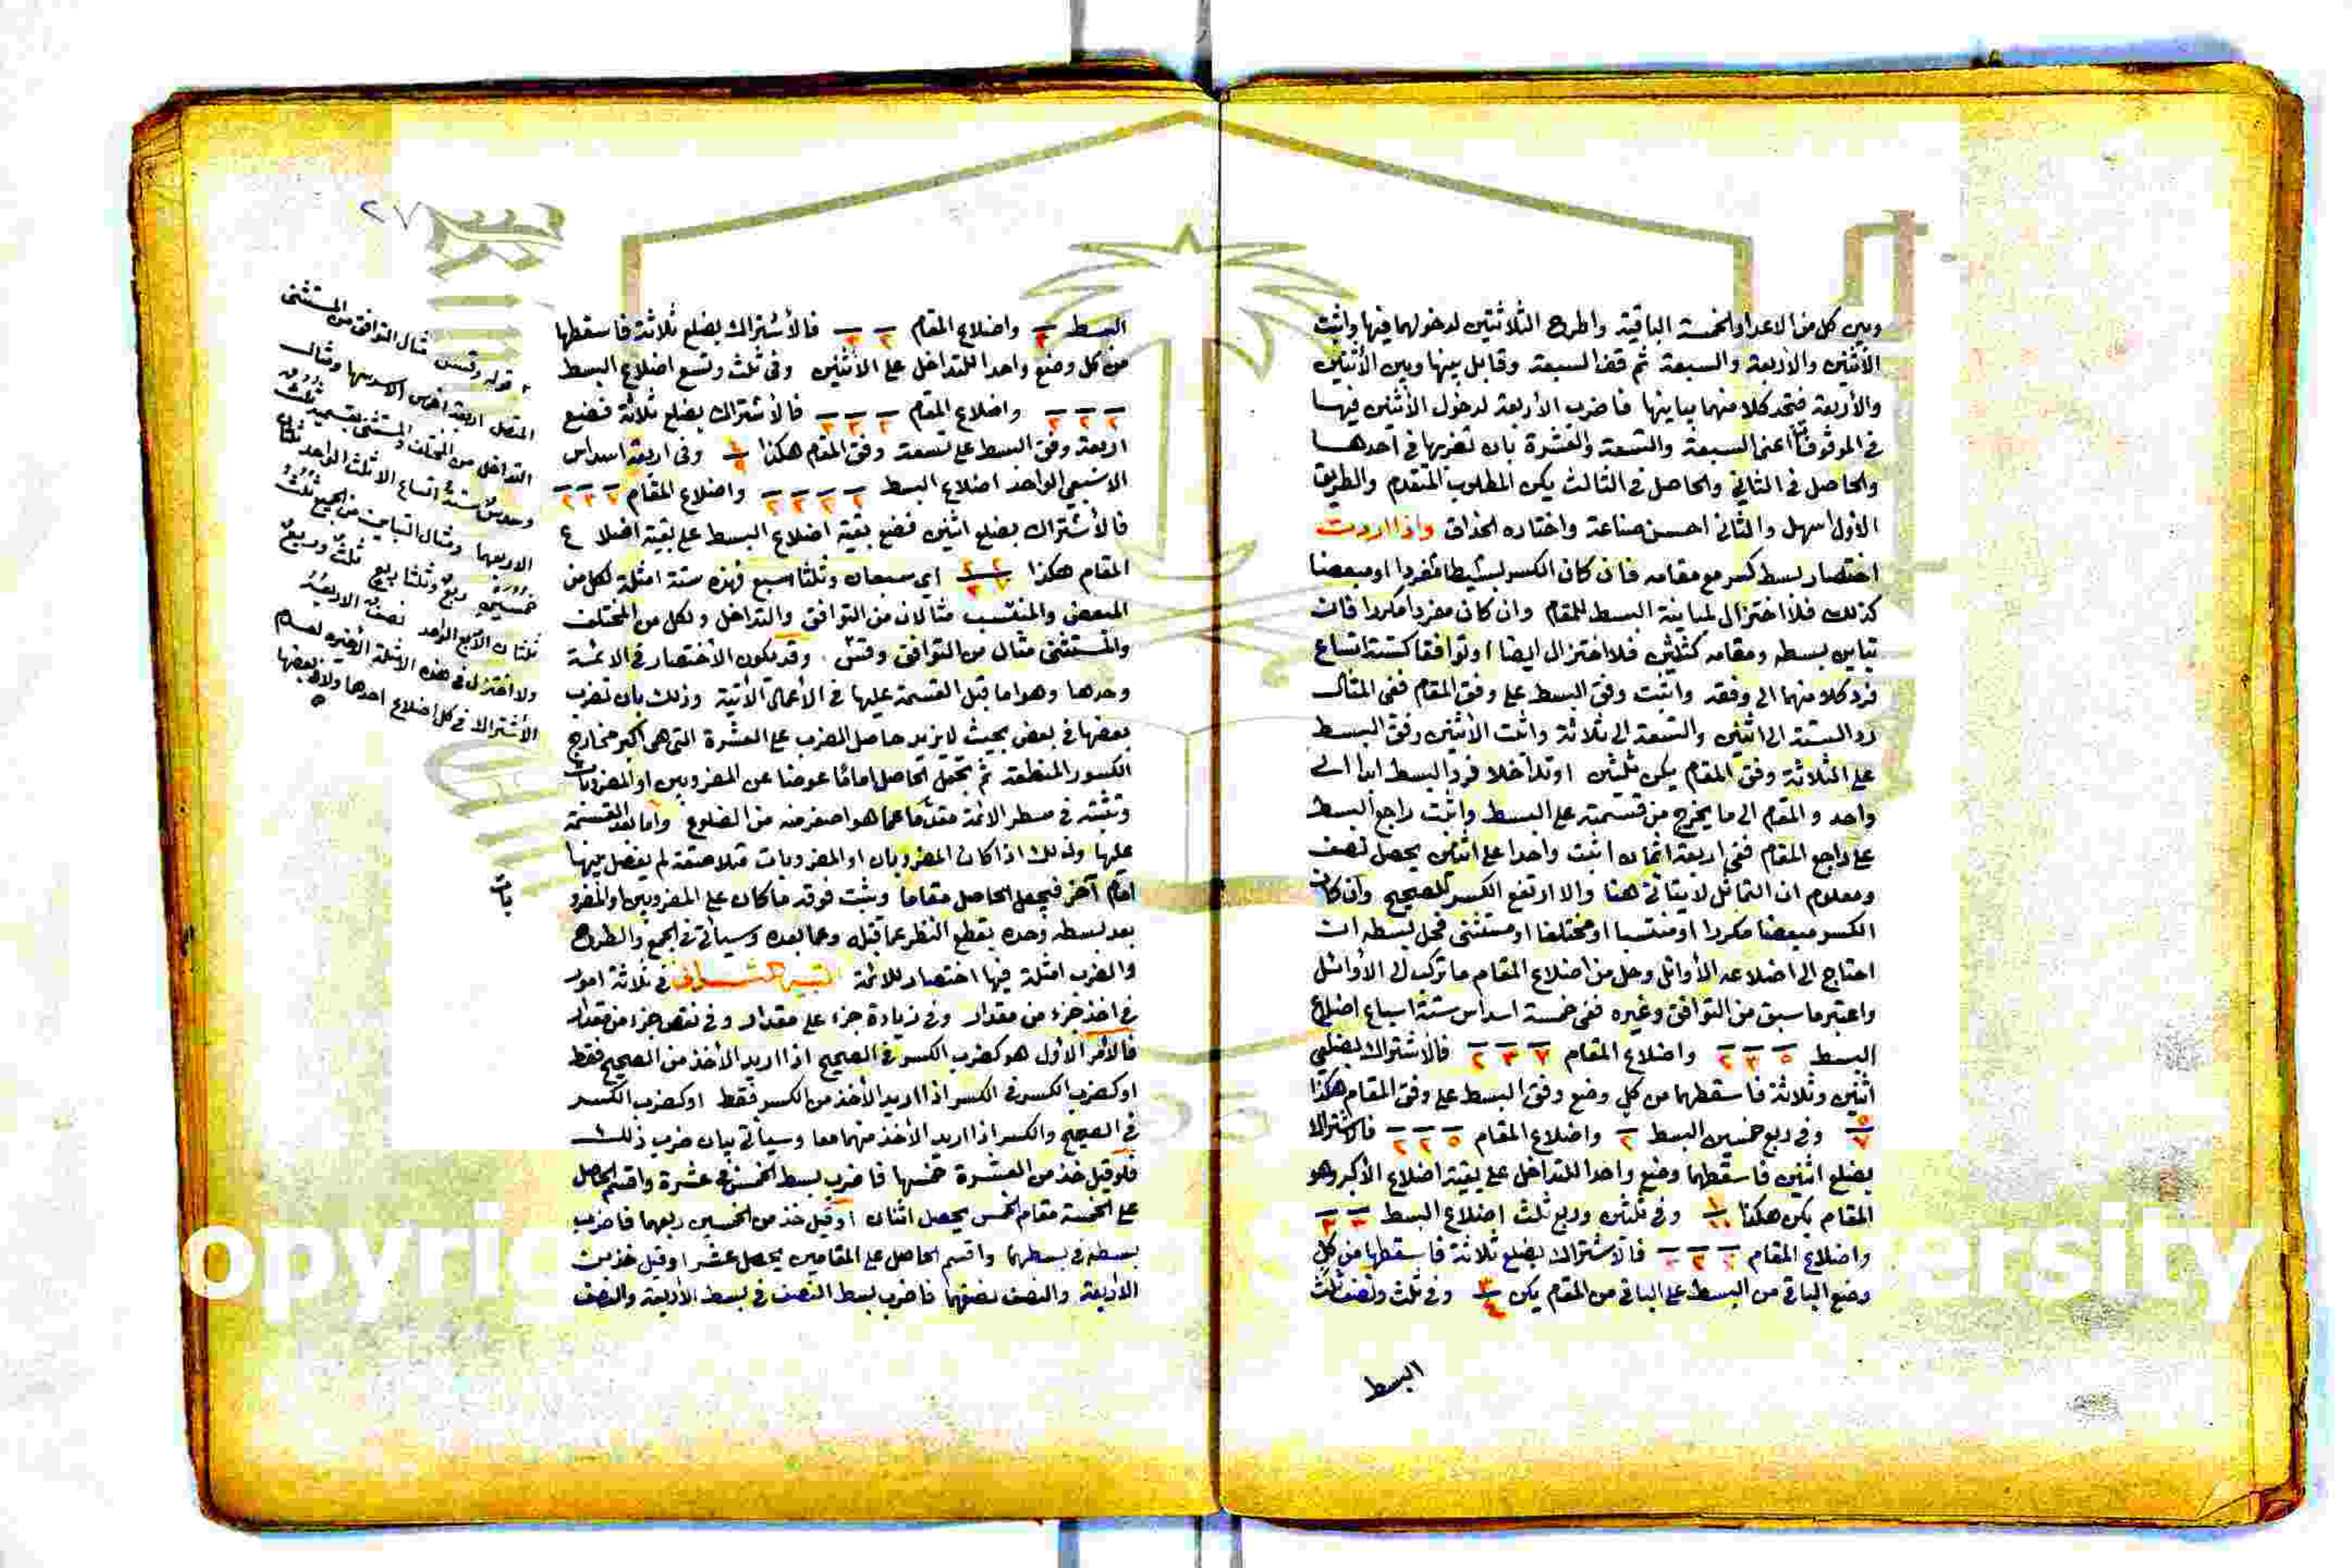 وبين كل من الاعداد الخمسة الباقية واطرح الثلاثتين لدخولهما فيها واثبت
الأثنين والأربعة والسبعة ثم قف السبعة وقابل بينها وبين الأثنين
والأربعة فتجد كلا منهما يباينها فاضرب الأربعة لدخول الأثنين فيها
في الموقوفات اعني السبعة والتسعة والعشرة بان تضربها في احدها
والحاصل في الثاني والحاصل في الثالث يكن المطلوب المتقدم والطريق
الأول اسهل والثاني احسن صناعة واختاره الحذاق واذا اردت
اختصار بسط كسر مع مقامه فان كان الكسر بسيطا مفردا او مبعضا
كذلك فلا اختزال لمباينة البسط للمقام وان كان مفردا مكررا فان
تباين بسطه ومقامه كثلثين فلا اختزال ايضا او توافقا كستة اتساع
فرد كلا منهما الى وفقه واثبت وفق البسط على وفق المقام ففي المثال
رد الستة الى اثنين والتسعة الى ثلاثة واثبت الأثنين وفق البسط
على الثلاثة وفق المقام يكن ثلثين او تداخلا فرد البسط ابدا الى
واحد والمقام الى ما يخرج من قسمته على البسط واثبت راجع البسط
على راجع المقام ففي اربعة اثمان اثبت واحدا على اثنين يحصل نصف
ومعلوم ان التماثل لا يتاتى هنا والا ارتفع الكسر للصحيح وان كان
الكسر مبعضا مكررا او منتسبا او مختلفا او مستثنى فحل بسطه ان
احتاج الى اضلاعه الأوائل وحل من اضلاع المقام ما تركب الى الأوائل
واعتبر ما سبق من التوافق وغيره ففي خمسة اسداس ستة اسباع اضلاع
البسط ٥ ٣ ٢ واضلاع المقام ٧ ٣ ٢ فالاشتراك بضلعي
اثنين وثلاثة فاسقطهما من كل وضع وفق البسط على وفق المقام هكذا
٥/٧ وفي ربع خمسين البسط ٢ واضلاع المقام ٥ ٢ ٢ فالاشتراك
بضلع اثنين فاسقطهما وضع واحدا للتداخل على بقية اضلاع الأكبر وهو
المقام يكن هكذا ١/١٠ وفي ثلثين وربع ثلث اضلاع البسط ٣ ٣
واضلاع المقام ٣ ٢ ٢ فالاشتراك بضلع ثلاثة فاسقطها من كل
وضع الباقي من البسط على الباقي من المقام يكن ٣/٤ وفي ثلث ونصف ثلث
البسط
٢٧
البسط ٣ واضلاع المقام ٣ ٢ فالأشتراك بضلع ثلاثة فاسقطها
من كل وضع واحدا للتداخل على الاثنين وفي ثلث وتسع اضلاع البسط
واضلاع المقام فالأشتراك بضلع ثلاثة فضع
اربعة وفق البسط على تسعة وفق المقام هكذا ٤/٩ وفي اربعة اسداس
الا سبعي الواحد اضلاع البسط ٢ ٢ ٢ ٢ واضلاع المقام ٧ ٣ ٢
فالأشتراك بضلع اثنين فضع بقية اضلاع البسط على بقية اضلاع
المقام هكذا اي سبعان وثلثا سبع فهذه ستة امثلة لكل من
المبعض والمنتسب مثالان من التوافق والتداخل ولكل من المختلف
والمستثنى مثال من التوافق وقس وقد يكون الأختصار في الائمة
وحدها وهو اما قبل القسمة عليها في الأعمال الأتية وذلك بان تضرب
بعضها في بعض بحيث لا يزيد حاصل الضرب على العشرة التي هي اكبر مخارج
الكسور المنطقة ثم تجعل الحاصل اماما عوضا عن المضروبين او المضروبات
وتثبته في سطر الائمة مقدما عما هو اصغر منه من الضلوع واما بعد القسمة
عليها وذلك اذا كان المضروبان او المضروبات متلاصقة لم يفصل بينها
امام آخر فيجعل الحاصل مقاما ويثبت فوقه ما كان على المضروبين او المضرو
بات
بعد بسطه وحده بقطع النظر عما قبل وعما بعده وسيأتي في الجمع والطرح
والضرب امثلة فيها اختصار للائمة التنبيه الثاني في ثلاثة امور
في اخذ جزء من مقدار وفي زيادة جزء على مقدار وفي نقص جزء من مقدار
فالأمر الأول هو كضرب الكسر في الصحيح اذا اريد الأخذ من الصحيح فقط
او كضرب الكسر في الكسر اذا اريد الأخذ من الكسر فقط او كضرب الكسر
في الصحيح والكسر اذا اريد الأخذ منهما معا وسيأتي بيان ضرب ذلك
فلو قيل خذ من العشرة خمسها فاضرب بسط الخمس في عشرة واقسم الحاصل
على الخمسة مقام الخمس يحصل اثنان او قيل خذ من الخمسين ربعهما فاضرب
بسطه في بسطهما واقسم الحاصل على المقامين يحصل عشر او قيل خذ من
الأربعة والنصف نصفهما فاضرب بسط النصف في بسط الأربعة والنصف
قوله وقس مثال التوافق من المستثنى
المتصل اربعة اخماس الا سدسها ومثال
التداخل من المختلف والمستثنى
وسدس ستة اتساع الا ثلث الواحد
الا ربعهما ومثال التباين من الجميع ثلث
ربع وثلثا ربع ثلث وربع
ثلثان الا ربع الواحد نصف الا ربعه
ولا اختزال في هذه الامثلة الأخيرة لعدم
الأشتراك في كل اضلاع احدها ولا في بعضها